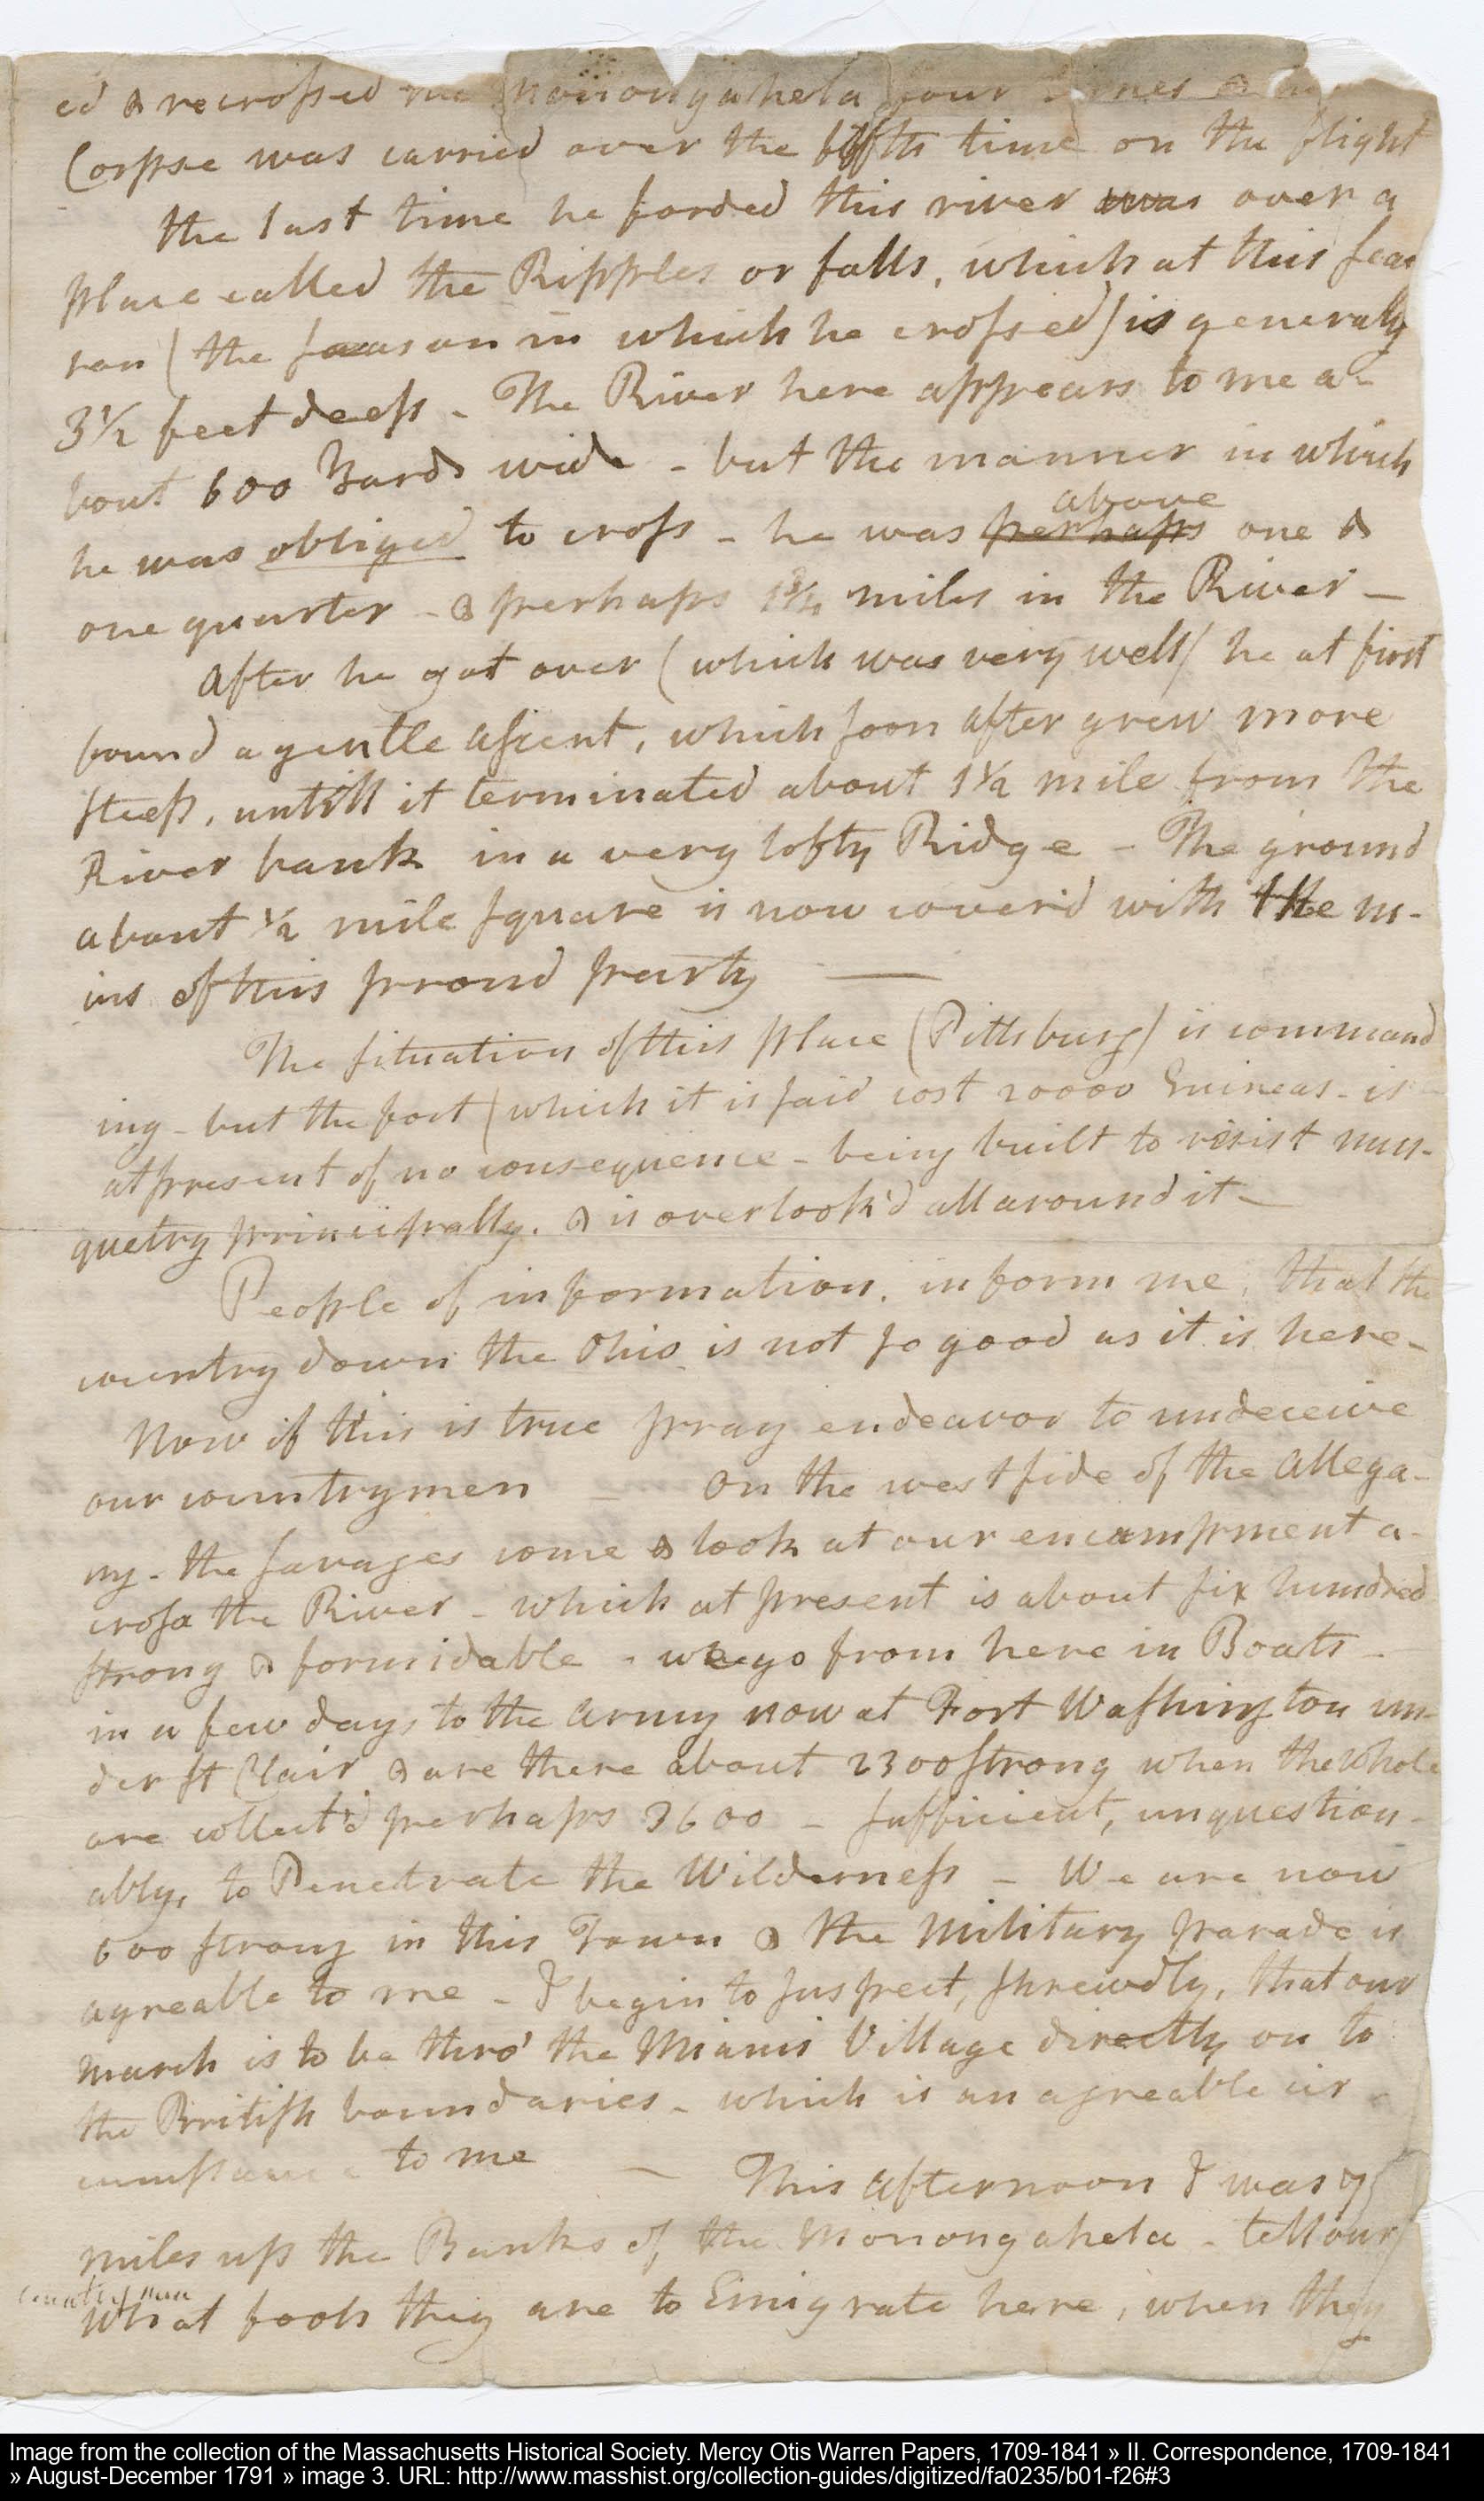 ed & recrossed the Monongahela four times & his
Corpse was carried over the fifth time on the flight
the last time he forded this river was over a
place called the Ripples or falls, which at this sea
son (the season in which he crossed) is generally
3½ feet deep - The River here appears to me a-
bout 600 Yards wide - but the manner in which
above
he was obliged to cross - he was perhaps one &
one quarter - & perhaps 1¾ miles in the River -
After he got over (which was very well) he at first
found a gentle ascent, which soon after grew more
steep, untill it terminated about 1½ mile from the
River bank in a very lofty Ridge - The ground
about ½ mile square is now cover'd with the ru-
ins of this proud party —
The situation of this place (Pittsburg) is command
ing - but the fort (which it is said cost 20000 Guineas - is
at present of no consequence - being built to resist mus-
quetry principally. & is overlook'd all around it -
People of information, inform me, that the
country down the Ohio is not so good as it is here -
Now if this is true pray endeavor to undeceive
our countrymen — On the west side of the Allega-
ny - the savages come & look at our encampment a-
cross the River - which at present is about six hundred
strong & formidable - we go from here in Boats -
in a few days to the Army now at Fort Washington un-
der St Clair & are there about 2300 strong when the whole
are collect'd perhaps 3600 - sufficient, unquestion-
ably, to Penetrate the Wilderness - We are now
600 strong in this Town & the Military parade is
agreable to me - I begin to suspect, shrewdly, that our
march is to be thro' the Miami Village directly on to
the British boundaries - which is an agreable cir
cumstance to me — This afternoon I was 7
miles up the Banks of the Monongahela - tell our
country men
what fools they are to Emigrate here, when they
Image from the collection of the Massachusetts Historical Society. Mercy Otis Warren Papers, 1709-1841 » II. Correspondence, 1709-1841
» August-December 1791 » image 3. URL: http://www.masshist.org/collection-guides/digitized/fa0235/b01-f26#3